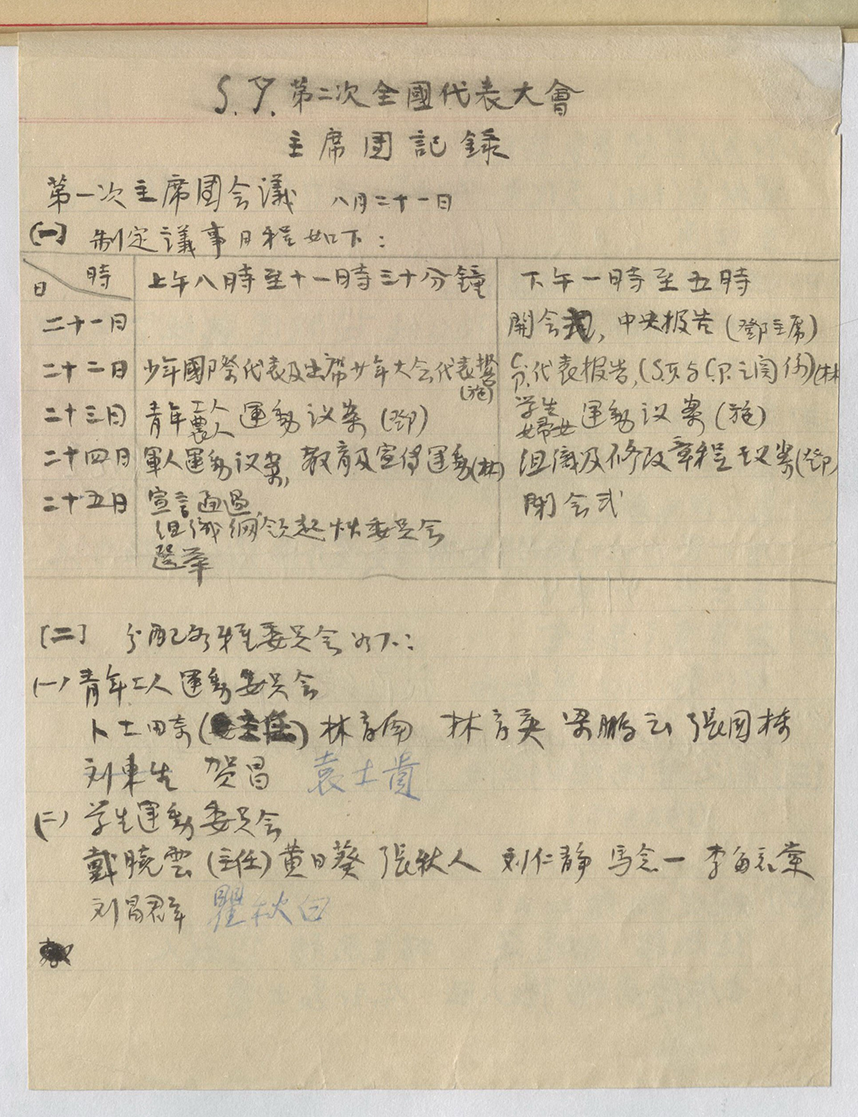 S.Y.第二次全國代表大會
主席团記録
第一次主席團会議 八月二十一日
(一) 制定議事日程如下：
日 時 上午八時至十一時三十分鐘 下午一時至五時
二十一日 開会式，中央报告（鄧主席）
二十二日 少年國际代表及出席少年大会代表報告(施) 分代表报告，(S.Y.与C.P.之関係)(林
二十三日 青年工人農人運動议案（鄧） 学生婦女運動议案（施）
二十四日 軍人運動议案，教育及宣傳運動(林) 组織及修改章程议案(鄧)
二十五日 宣言通過， 閉会式
组織綱领起草委员会
選举
[二] 分配各種委员会如下：
(一) 青年工人運動委员会
卜士畸（主任）林育南 林育英 梁鹏云 張国栋
刘東生 贺昌 袁士貴
(二) 学生運動委员会
戴曉雲（主任）黄日葵 張秋人 刘仁静 馬念一 李
刘昌群 瞿秋白